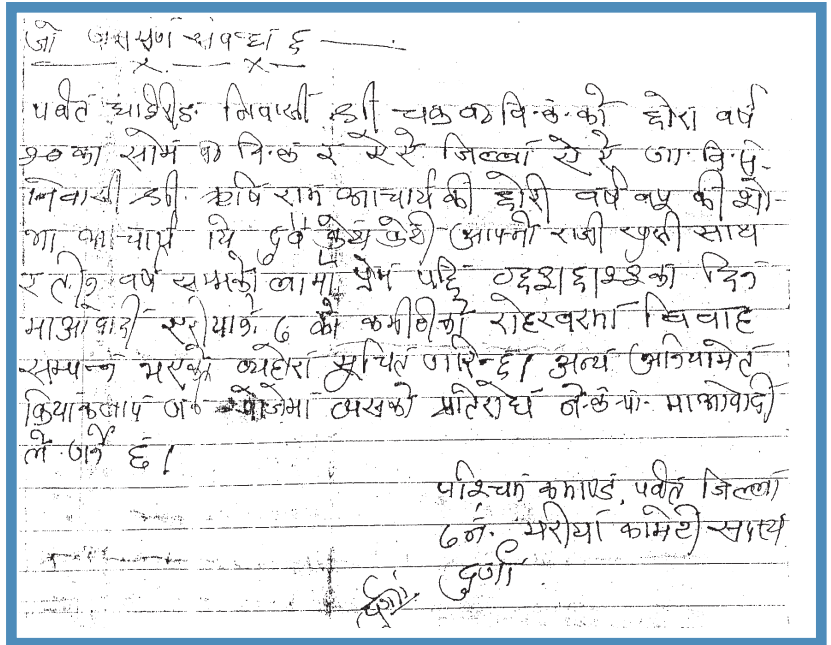 जो जस सँग संबन्ध छ
पर्वत निवासी श्री चक्र ब वि.क. को छोरा वर्ष
२०का सोम ब वि.क र ऐ ऐ जिल्ला ऐ ऐ गा.वि.स.
निवासी श्री ऋषि राम आचार्य की छोरी वर्ष की शो-
भा आचार्य यि दुवै केटा केटी आफ्नो राजी खुशी साथ
र तीन वर्ष सम्मको लामो प्रेम पछि दिन
माओवादी एरीया नं. ७ को कमीटीको रोहरवरमा विवाह
सम्पन्न भएको व्यहोरा सूचित गरिन्छ। अन्य
क्रियाकलाप गर्न खोजेमा त्यसको प्रतिरोध ने.क.पा. माओवादी
ले गर्ने छ।
पश्चिम कमाण्ड, पर्वत जिल्ला
७ नं. एरीया कमिटी सदस्य
दुर्गा